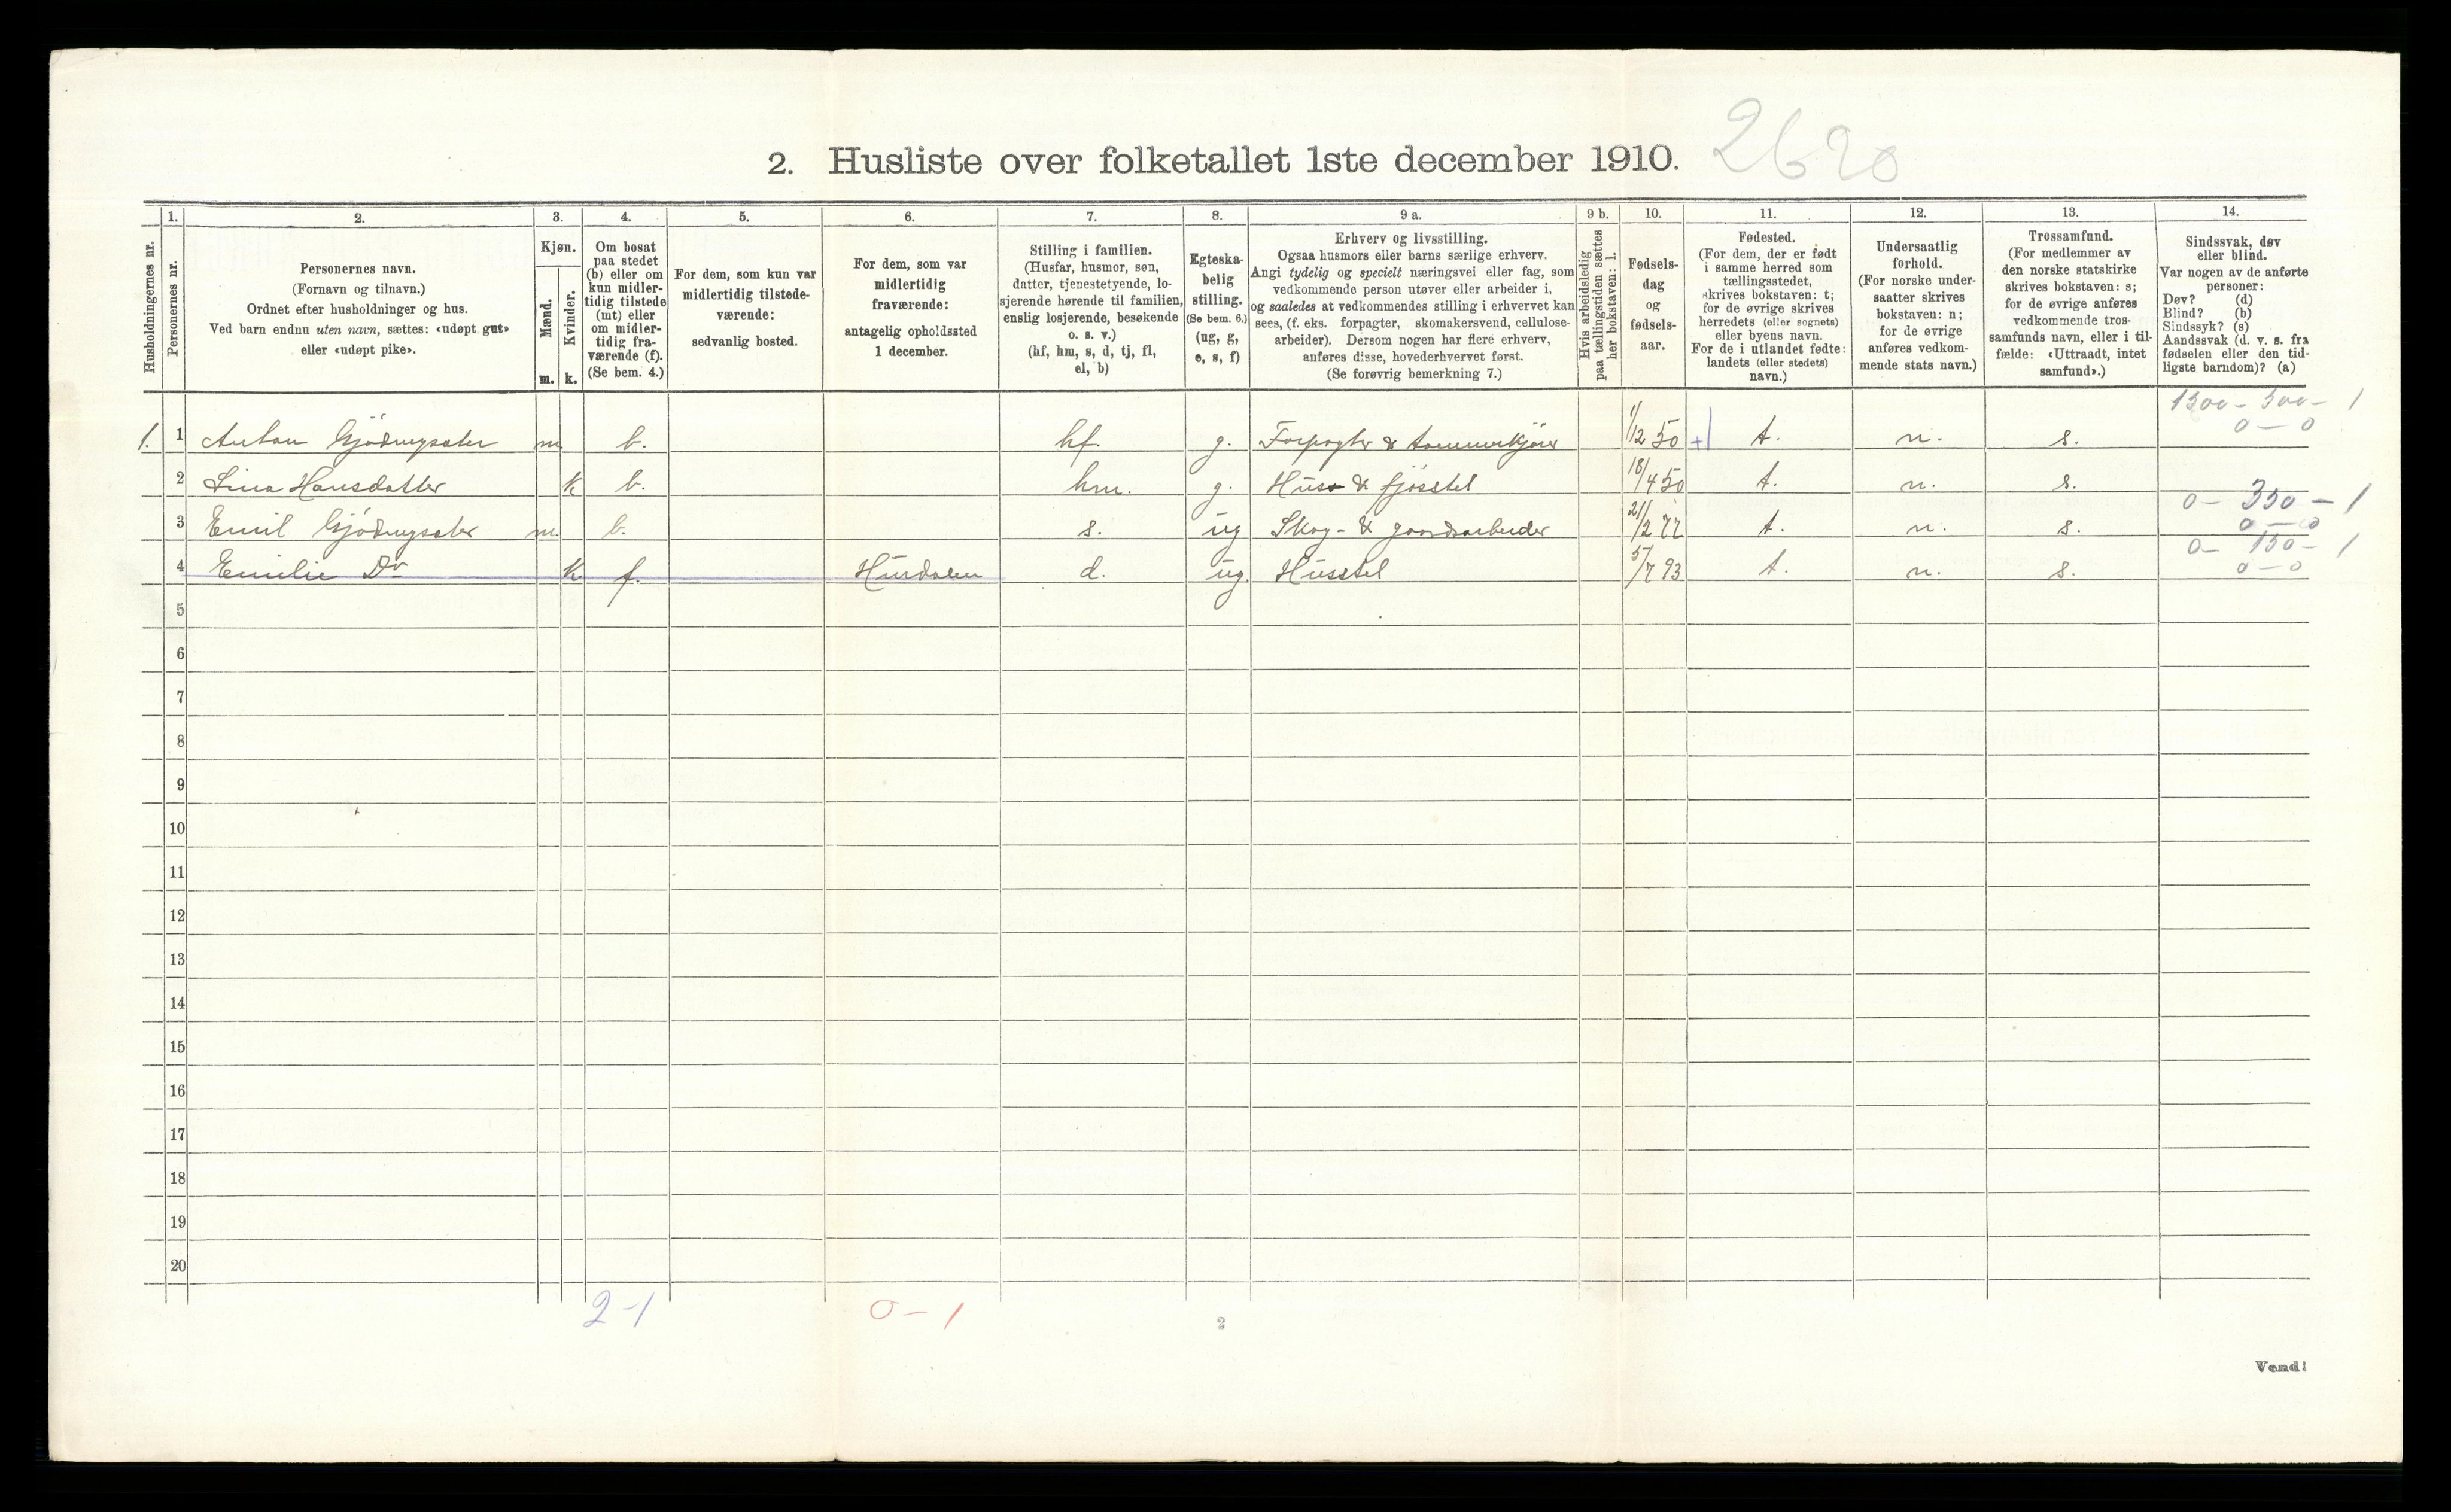 2. Husliste over folketallet 1ste december 1910. 2620
Husholdningernes nr.
1.
Personernes nr.
2.
Personernes navn.
(Fornavn og tilnavn.)
Ordnet efter husholdninger og hus.
Ved barn endnu uten navn, sættes: «udøpt gut»
eller «udøpt pike».
3.
Kjøn.
Mænd.
m.
Kvinder.
k.
4.
Om bosat
paa stedet
(b) eller om
kun midler-
tidig tilstede
(mt) eller
om midler-
tidig fra-
værende (f).
(Se bem. 4.)
5.
For dem, som kun var
midlertidig tilstede-
værende:
sedvanlig bosted.
6.
For dem, som var
midlertidig
fraværende:
antagelig opholdssted
1 december.
7.
Stilling i familien.
(Husfar, husmor, søn,
datter, tjenestetyende, lo-
sjerende hørende til familien,
enslig losjerende, besøkende
o. s. v.)
(hf, hm, s, d, tj, fl,
el, b)
8.
Egteska-
belig
stilling.
(Se bem. 6.)
(ug, g,
e, s, f)
9 a.
Erhverv og livsstilling.
Ogsaa husmors eller barns særlige erhverv.
Angi tydelig og specielt næringsvei eller fag, som
vedkommende person utøver eller arbeider i,
og saaledes at vedkommendes stilling i erhvervet kan
sees, (f. eks. forpagter, skomakersvend, cellulose-
arbeider). Dersom nogen har flere erhverv,
anføres disse, hovederhvervet først.
(Se forøvrig bemerkning 7.)
9 b.
Hvis arbeidsledig
paa tællingstiden sættes
her bokstaven: l.
10.
Fødsels-
dag
og
fødsels-
aar.
11.
Fødested.
(For dem, der er født
i samme herred som
tællingsstedet,
skrives bokstaven: t;
for de øvrige skrives
herredets (eller sognets)
eller byens navn.
For de i utlandet fødte:
landets (eller stedets)
navn.)
12.
Undersaatlig
forhold.
(For norske under-
saatter skrives
bokstaven: n;
for de øvrige
anføres vedkom-
mende stats navn.)
13.
Trossamfund.
(For medlemmer av
den norske statskirke
skrives bokstaven: s;
for de øvrige anføres
vedkommende tros-
samfunds navn, eller i til-
fælde: «Uttraadt, intet
samfund».)
14.
Sindssvak, døv
eller blind.
Var nogen av de anførte
personer:
Døv? (d)
Blind? (b)
Sindssyk? (s)
Aandssvak (d. v. s. fra
fødselen eller den tid-
ligste barndom)? (a)
1300 - 300 - 1
1. 1 Anton Gjødningsæter m b. hf. g. Forpagter & tømmerkjører 1/2 50 + t. n. s. 0 - 0
2 Lina Hansdatter k b. hm. g. Hus & fjøsstel 18/4 50 t. n. s.
0 - 350 - 1
3 Emil Gjødningsæter m. b. s. ug Skog- & gaardsarbeider 21/2 72 t. n. s. 0 - 0
0 - 150 - 1
4 Emilie Do k f. Hurdalen d. ug. Husstel 5/7 93 t. n. s. 0 - 0
5
6
7
8
9
10
11
12
13
14
15
16
17
18
19
20
2-1 0-1
2
Vend!